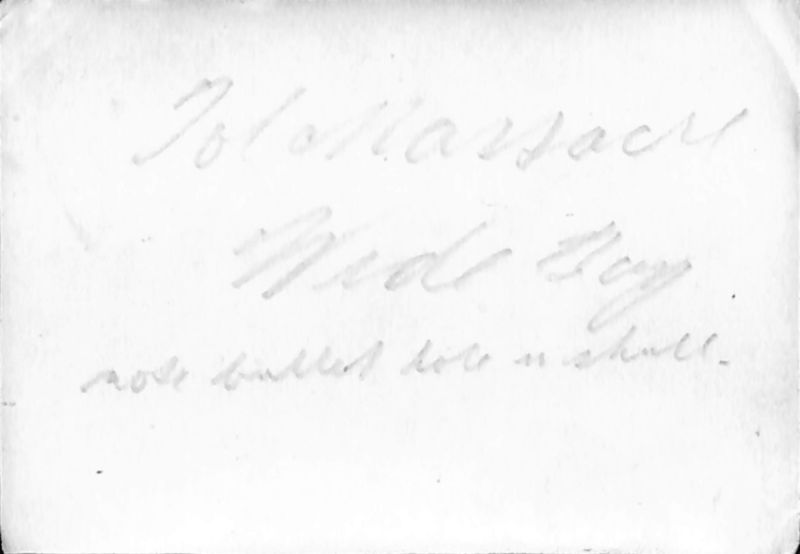 Tol Massacre
Wide Bay
note bullet hole in skull.